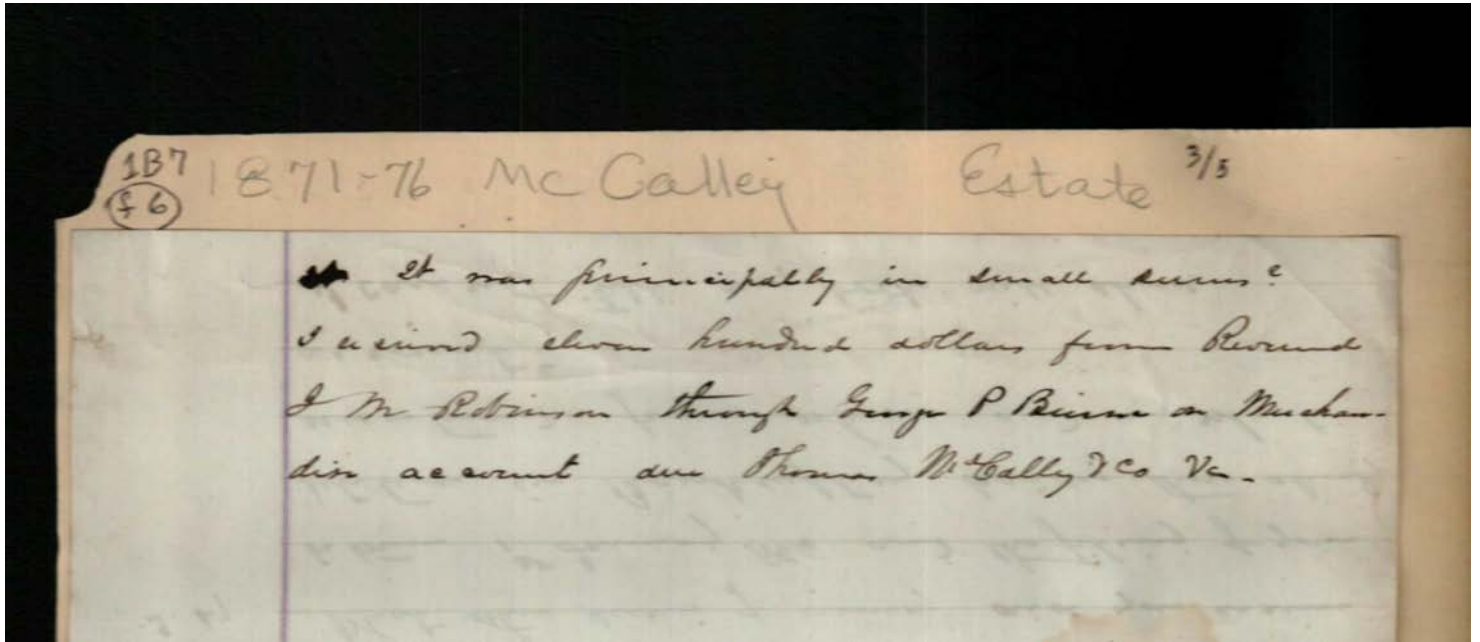 1B7
f 6
1871-76 McCalley Estate 3/5
It was principally in small sums?
I received eleven hundred dollars from Reverend
J M Robinson through George P Beirne on Merchan-
dise account due Thomas McCalley & Co Va.